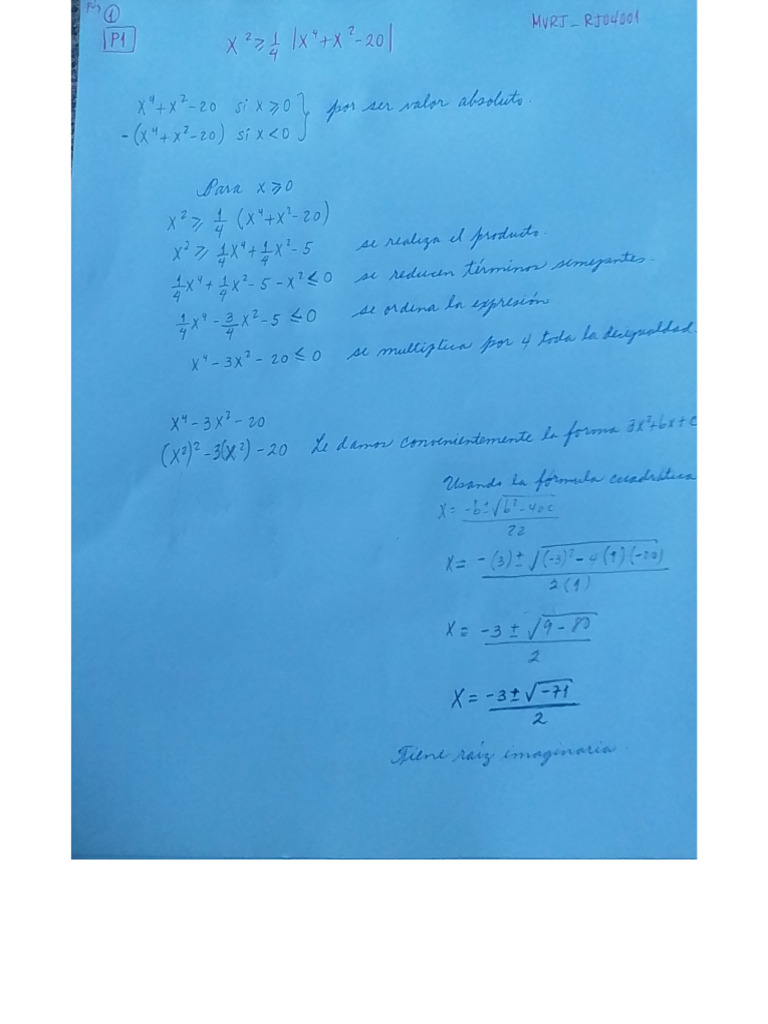 Pág ①
P1
MVRJ_RJ04001
x² ≥ 1/4 |x⁴+x²-20|
x⁴+x²-20 si x≥0 } por ser valor absoluto.
-(x⁴+x²-20) si x<0
Para x≥0
x² ≥ 1/4 (x⁴+x²-20)
x² ≥ 1/4x⁴+1/4x²-5 se realiza el producto.
1/4x⁴+1/4x²-5-x² ≤0 se reducen términos semejantes.
1/4x⁴-3/4x²-5 ≤0 se ordena la expresión
x⁴-3x²-20 ≤0 se multiplica por 4 toda la desigualdad.
x⁴-3x²-20
(x²)²-3(x²)-20 Le damos convenientemente la forma ax²+bx+c
Usando la fórmula cuadrática
x= -b±√b²-4ac / 2a
x= -(3)±√(-3)²-4(1)(-20) / 2(1)
x= -3±√9-80 / 2
x= -3±√-71 / 2
Tiene raíz imaginaria.